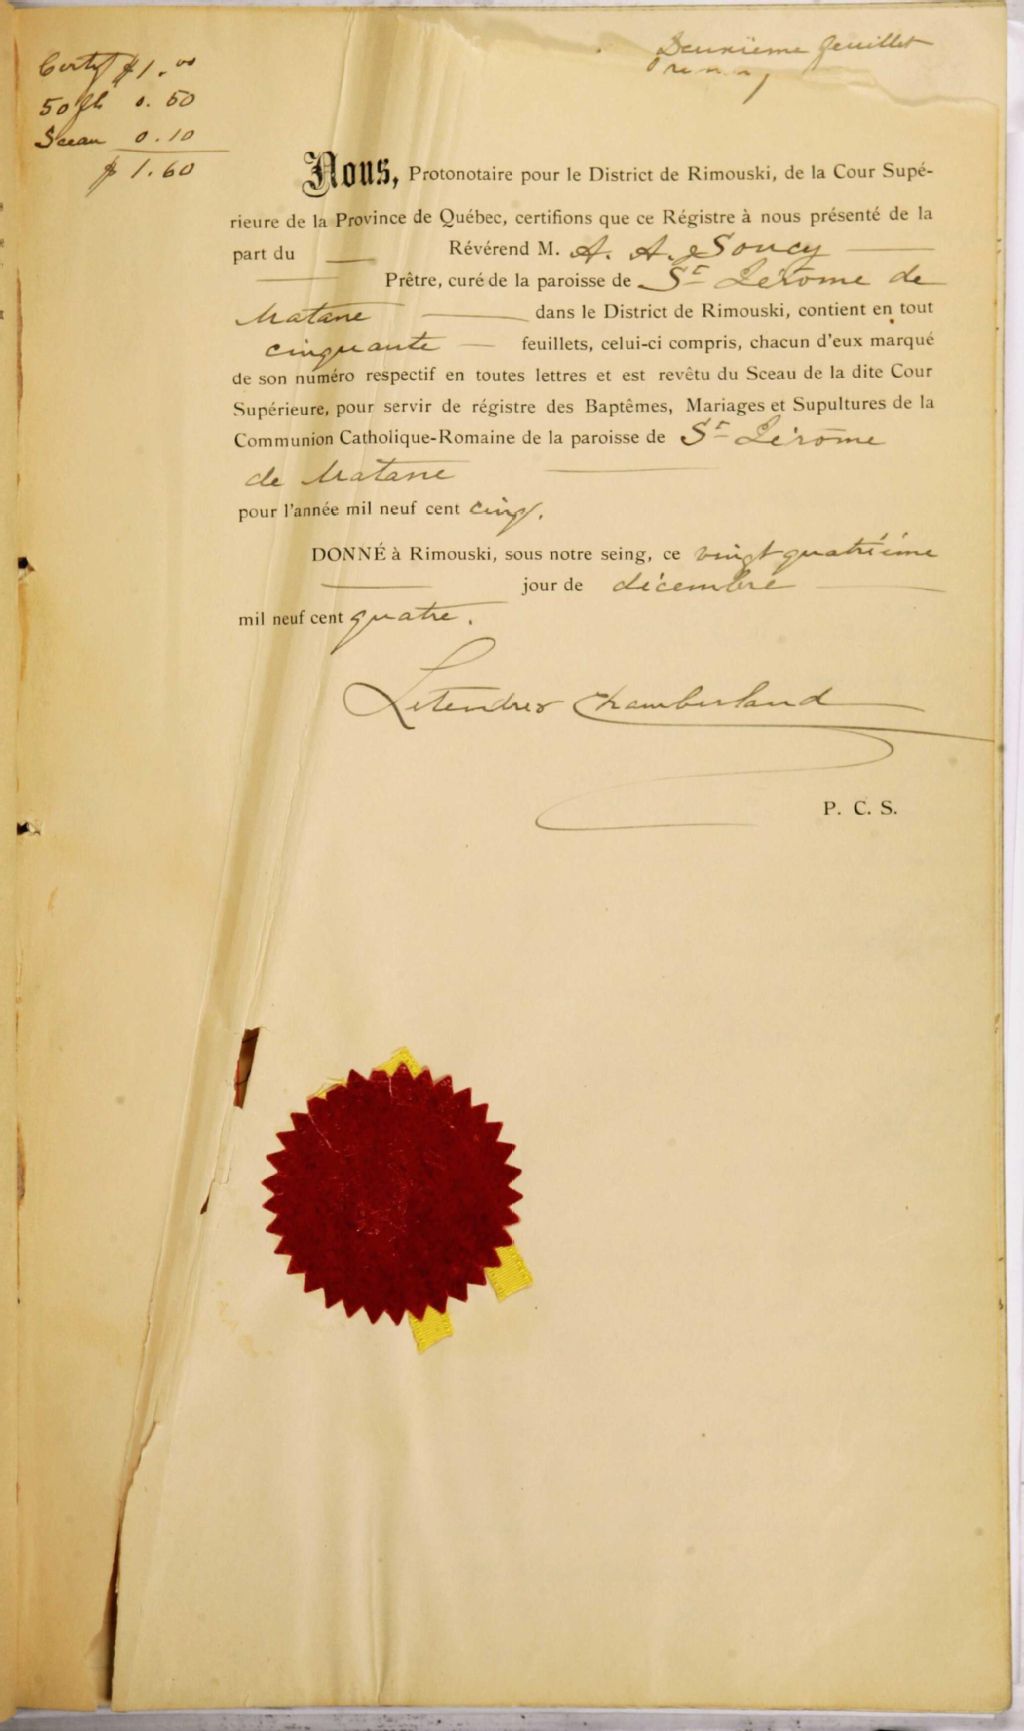 Certif $1.00
50 fls 0.50
Sceau 0.10
$ 1.60
Deuxième feuillet
Nous, Protonotaire pour le District de Rimouski, de la Cour Supé-
rieure de la Province de Québec, certifions que ce Régistre à nous présenté de la
part du Révérend M. A. A. Soucy
Prêtre, curé de la paroisse de St Jérôme de
Matane dans le District de Rimouski, contient en tout
cinquante feuillets, celui-ci compris, chacun d'eux marqué
de son numéro respectif en toutes lettres et est revêtu du Sceau de la dite Cour
Supérieure, pour servir de régistre des Baptêmes, Mariages et Supultures de la
Communion Catholique-Romaine de la paroisse de St Jérôme
de Matane
pour l'année mil neuf cent cinq.
DONNÉ à Rimouski, sous notre seing, ce vingt quatrième
jour de décembre
mil neuf cent quatre.
Letendre & Chamberland
P. C. S.